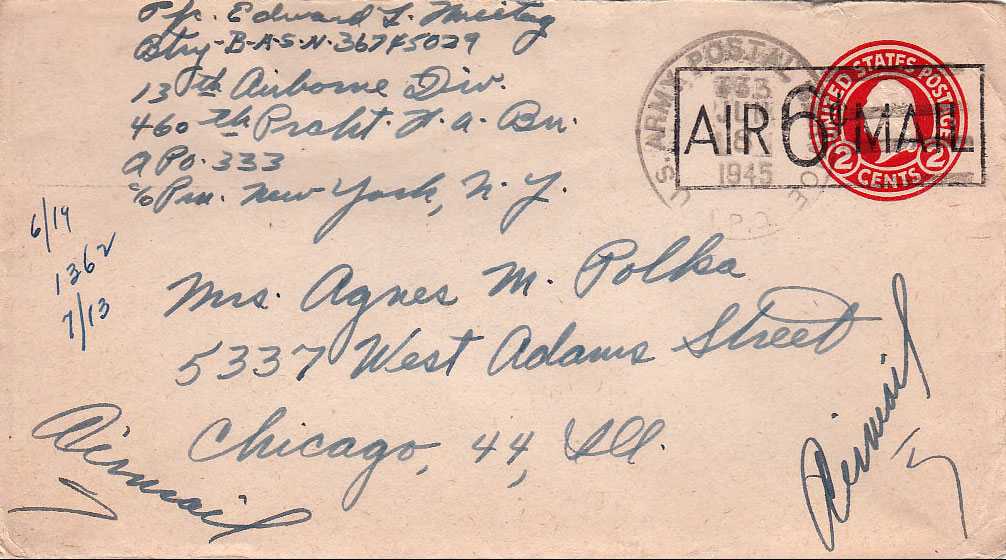 Pfc. Edward L. Freitag
Btry-B-A-S-N-36745029
13th Airborne Div.
460th Pracht. F. A. Bn.
APO. 333
c/o Pm. New York, N. Y.
U.S. ARMY POSTAL
333
JUL
8
1945
A.P.O.
AIR 6¢ MAIL
UNITED STATES POSTAGE
2 CENTS 2
6/19
1362
7/13
Mrs. Agnes M. Polka
5337 West Adams Street
Chicago, 44, Ill.
Airmail
Airmail